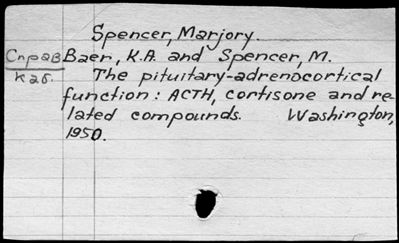 Spencer, Marjory.
Справ Baer, K.A. and Spencer, M.
каб. The pituitary-adrenocortical
function: ACTH, cortisone and re
lated compounds. Washington,
1950.